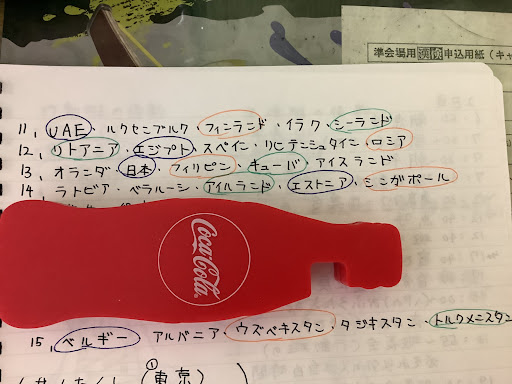 準会場用 英検 申込用紙(キャ
11, UAE・ルクセンブルク・フィンランド・イラク・シーランド
12, リトアニア・エジプト・スペイン・リヒテンシュタイン・ロシア
13, オランダ・日本・フィリピン・キューバ・アイスランド
14 ラトビア・ベラルーシ・アイルランド・エストニア・シンガポール
Coca-Cola
15, ベルギー アルバニア・ウズベキスタン・タジキスタン・トルクメニスタン
① (東京)